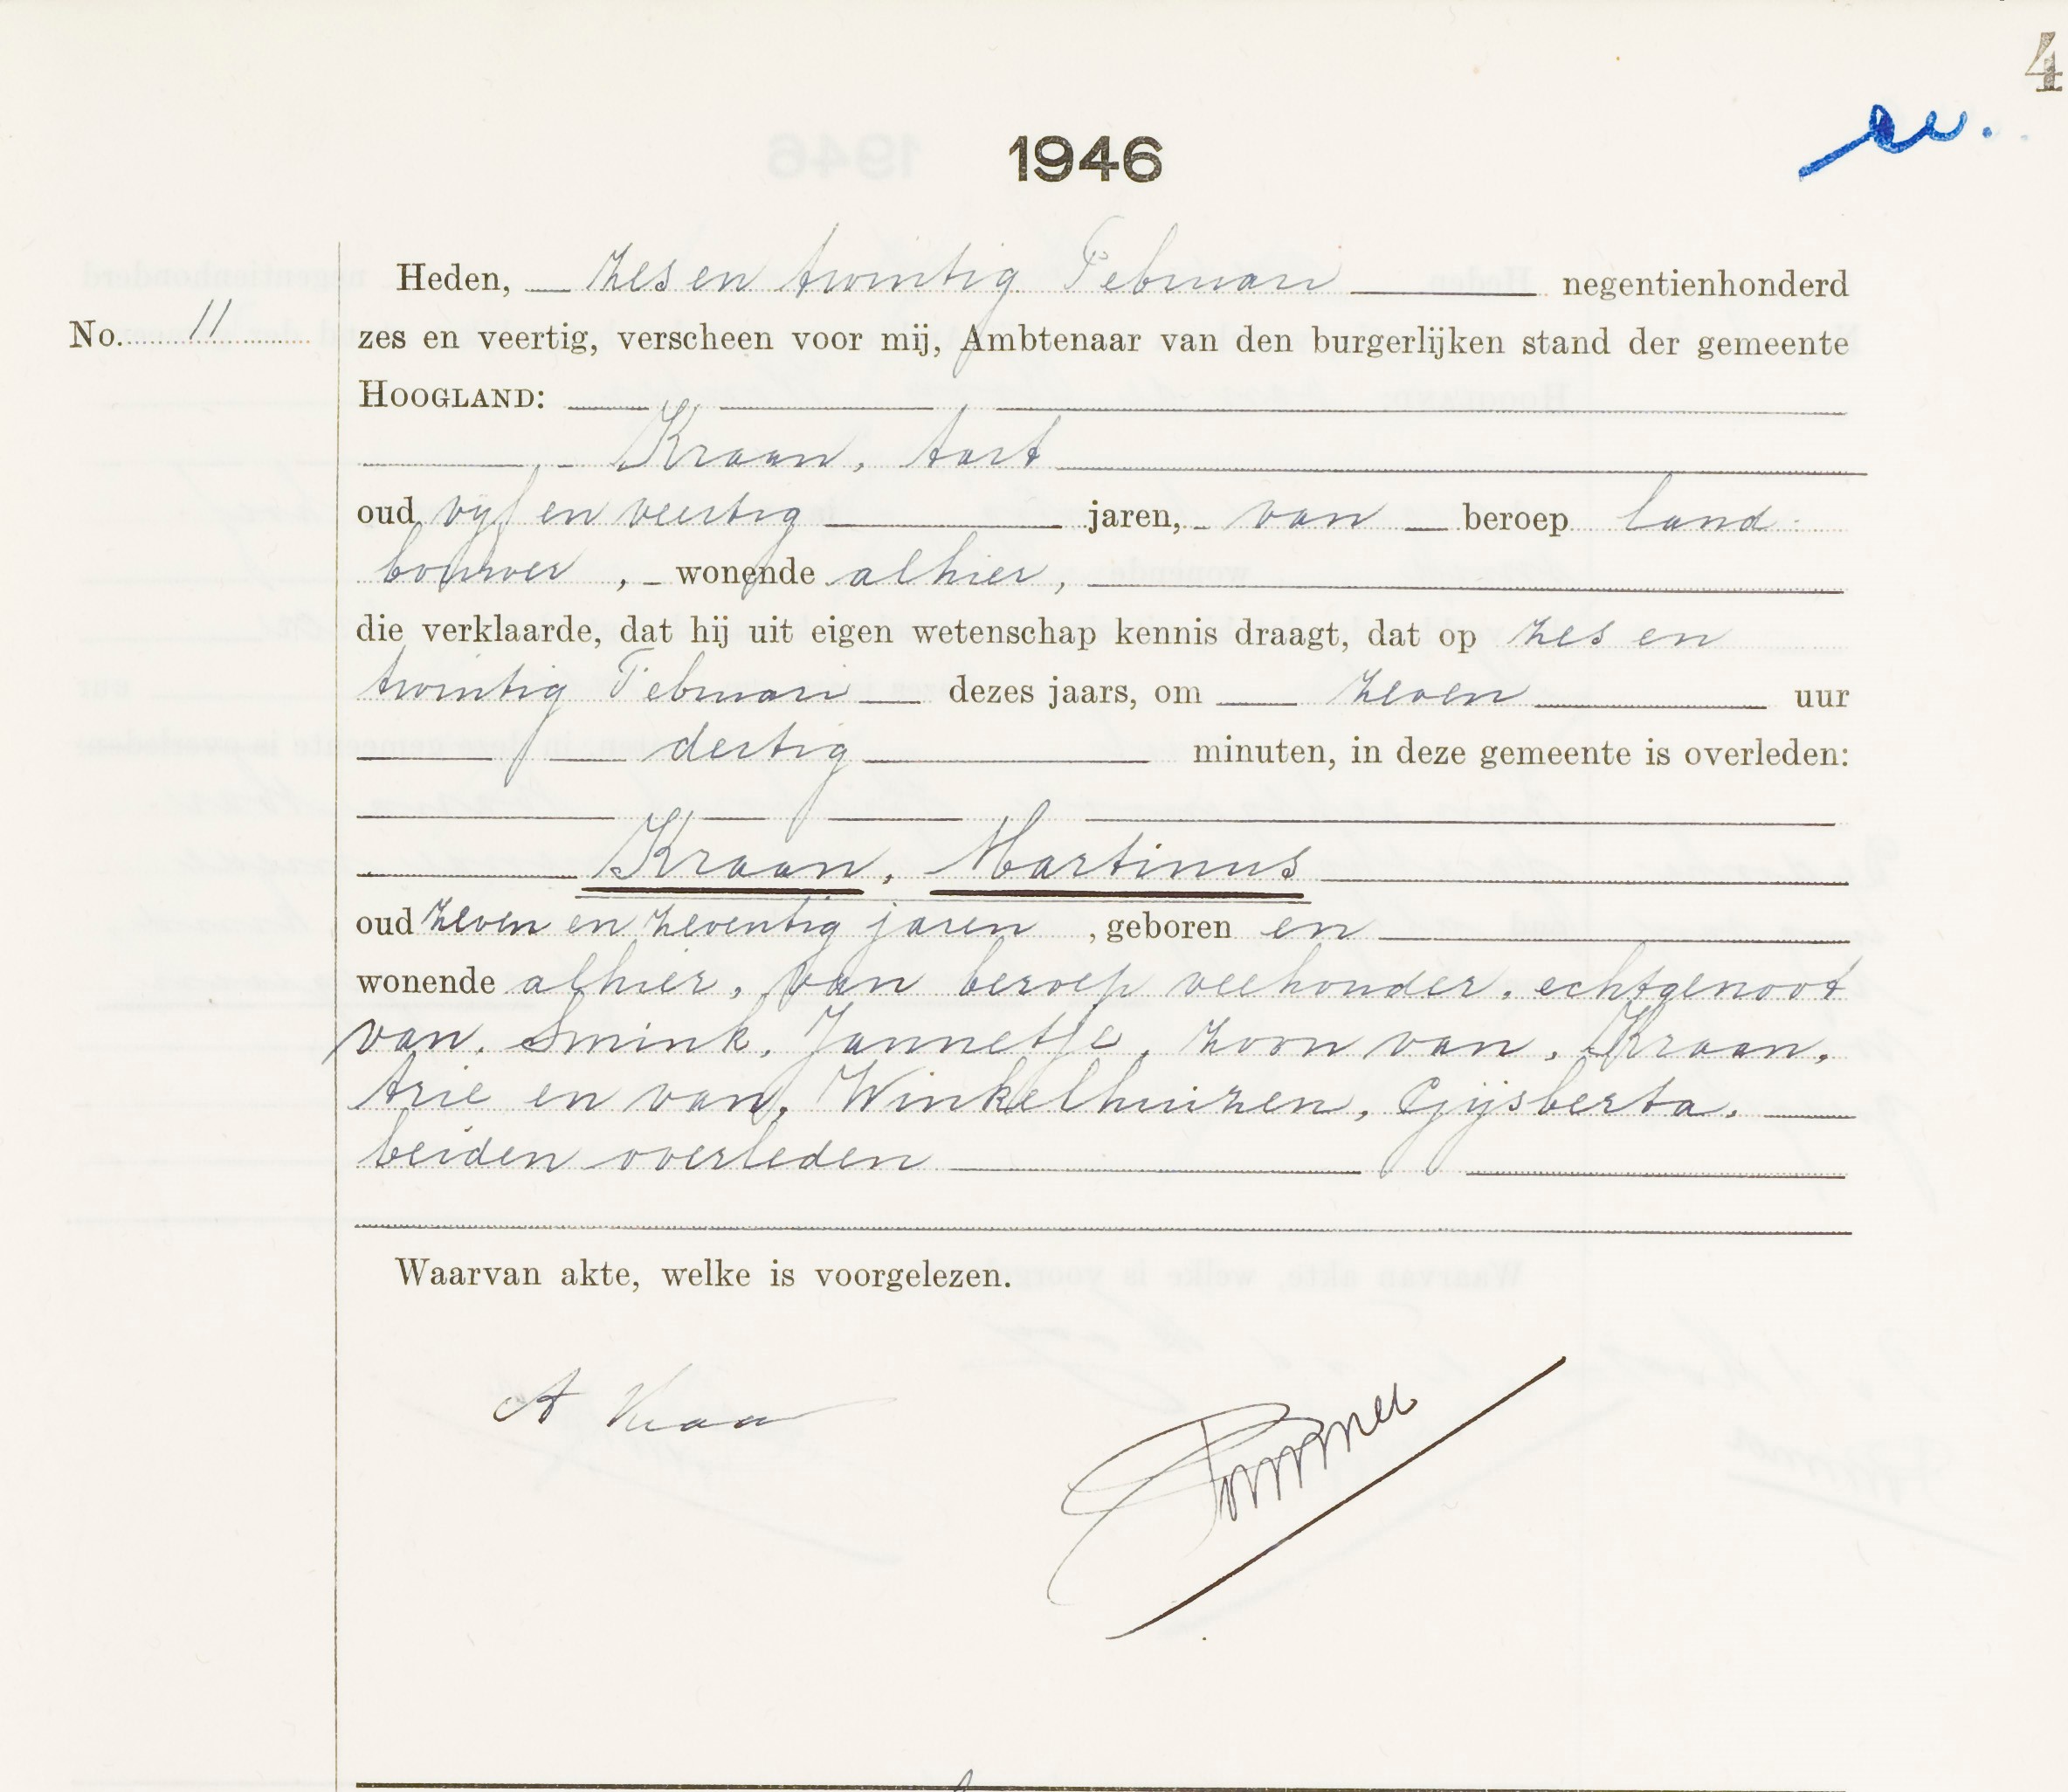 4
1946
No. 11
Heden, zes en twintig Februari negentienhonderd
zes en veertig, verscheen voor mij, Ambtenaar van den burgerlijken stand der gemeente
HOOGLAND:
Kraan, Aart
oud vijf en veertig jaren, van beroep land
bouwer, wonende alhier,
die verklaarde, dat hij uit eigen wetenschap kennis draagt, dat op zes en
twintig Februari dezes jaars, om zeven uur
dertig minuten, in deze gemeente is overleden:
Kraan, Martinus
oud zeven en zeventig jaren, geboren en
wonende alhier, van beroep veehouder, echtgenoot
van, Smink, Jannetje, zoon van, Kraan,
Arie en van, Winkelhuizen, Gijsberta,
beiden overleden
Waarvan akte, welke is voorgelezen.
A Kraan